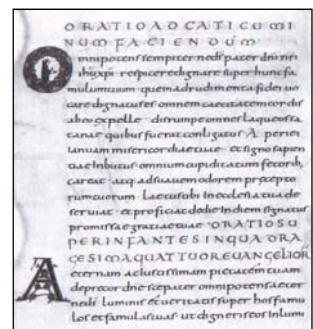 ORATIO AD CATICUMI
NUM FACIENDUM
Omnipotens sempiter nedſ pater dni nri
ihu xpi respicere dignare super hunc fa
mulum tuum quem ad rudimenta fidei uo
care dignatus es omnem caecitatem cordis
ab eo expelle disrumpe omnes laqueos sa
tanae quibus fuerat conligatus Aperi ei
ianuam misericordiae tuae et signo sapien
tiae inbutus omnium cupiditatum fetorib;
careat atq ad suauem odorem precepto
rum tuorum Laetus tibi In ecclesia tua de
seruiat et proficiat de die In diem signatus
promissae gratiae tuae ORATIO SU
PER INFANTES IN QUADRA
GESIMA QUATTUOR EUANGELIOR
Aeternam ac Iustissimam pietatem tuam
deprecor dne sce pater omnipotens aeter
ne ds luminis et ueritatis super hos famu
los et famulas tuas ut digneris eos Inlumi